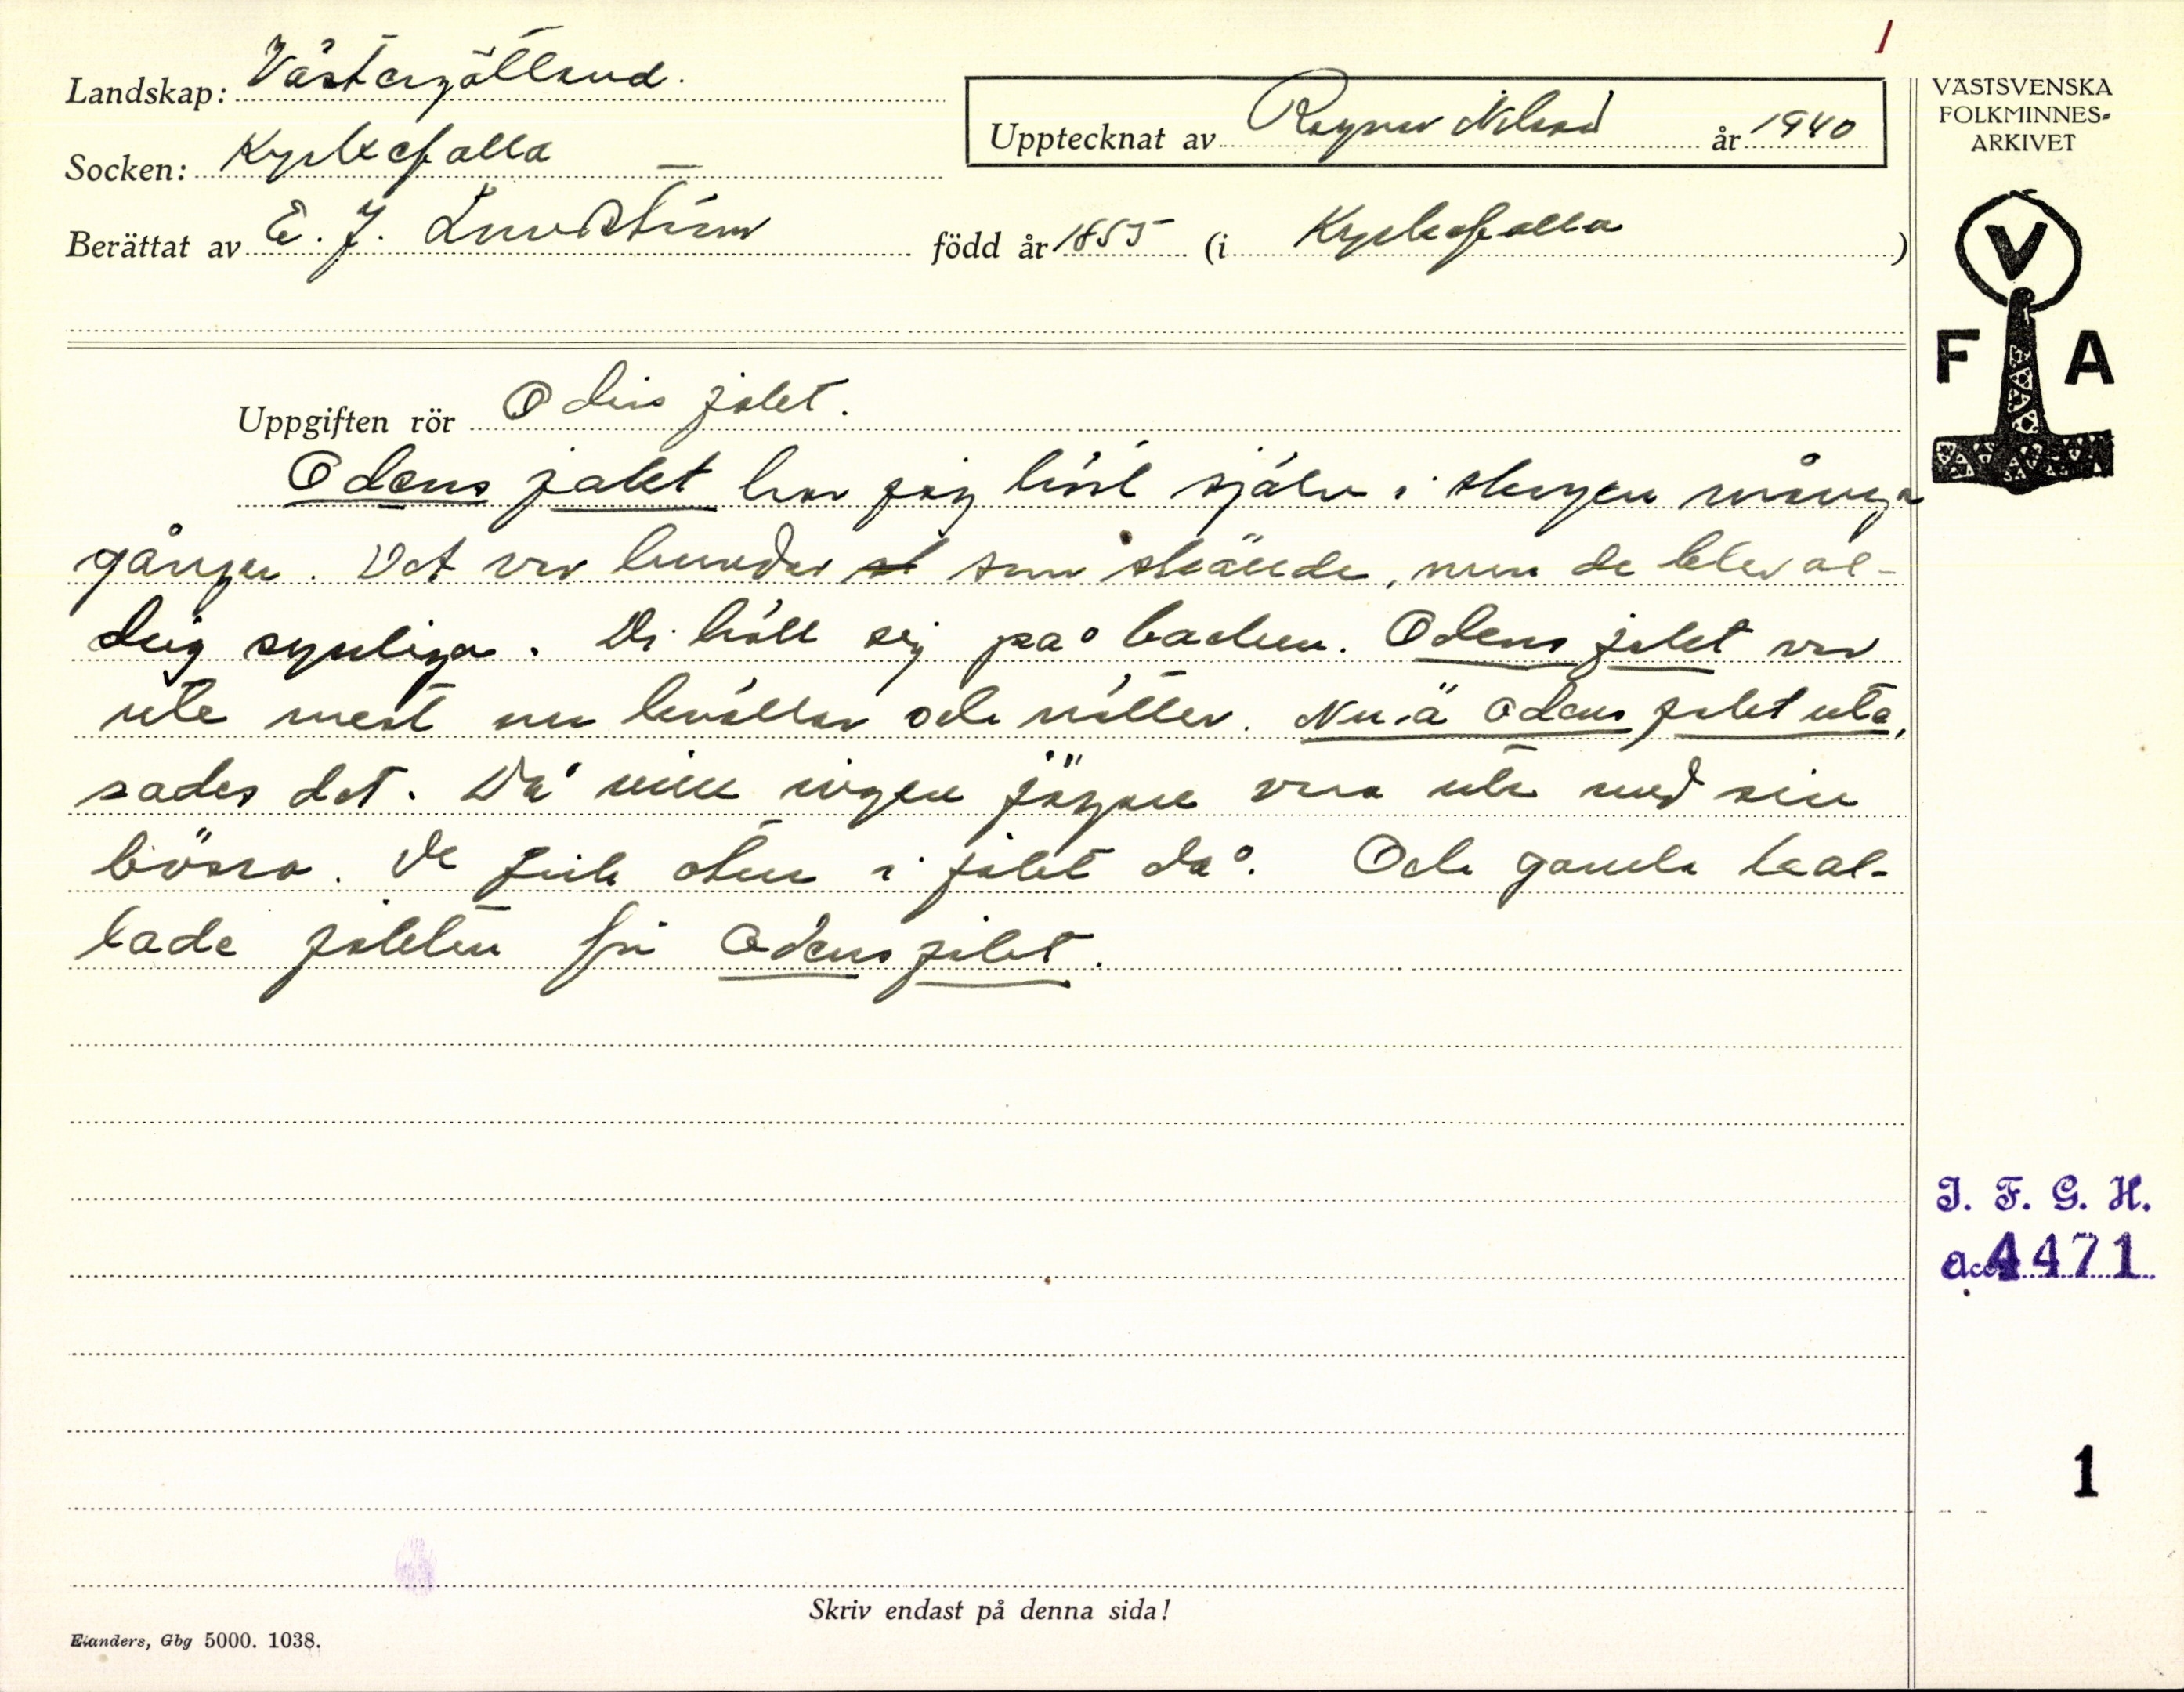 1
Landskap: Västergötland.
Socken: Kyrkefalla
Upptecknat av Ragnar Nilsson år 1940
Berättat av E. J. Lundström född år 1855 (i Kyrkefalla)
VÄSTSVENSKA
FOLKMINNES-
ARKIVET
V
F A
Uppgiften rör Odins jakt.
Odens jakt har jag hört själv i skogen många
gånger. Det var hundar som skällde, men de blev al-
drig synliga. Di höll sej på backen. Odens jakt var
ute mest om kvällar och nätter. Nu ä Odens jakt ute,
sades det. Då vill ingen jägare vara ute med sin
bössa. De gick utan i jakt då. Och gamla kal-
lade jakten för Odens jakt.
I. F. G. H.
acc. 4471
1
Skriv endast på denna sida!
Elanders, Gbg 5000. 1038.